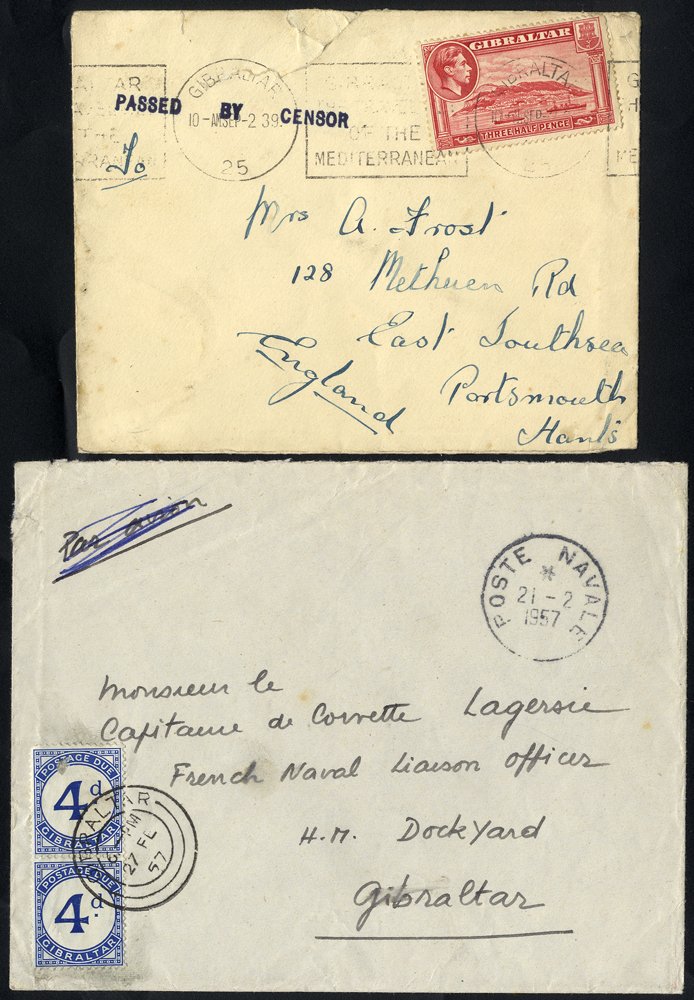 GIBRALTAR
THREE HALF PENCE
GIBRALTAR
10-AM SEP-2 39
25
PASSED BY CENSOR
OF THE
MEDITERRANEAN
GIBRALTA
To
Mrs A. Frost
128 Methuen Rd
East Southsea
Portsmouth
Hants
England
Par avion
POSTE NAVALE
21-2
1957
Monsieur le
Capitaine de Corvette Lagersie
French Naval Liaison Officer
H.M. Dockyard
Gibraltar
POSTAGE DUE
4d
GIBRALTAR
GIBRALTAR
PM
27 FE
57
POSTAGE DUE
4d.
GIBRALTAR